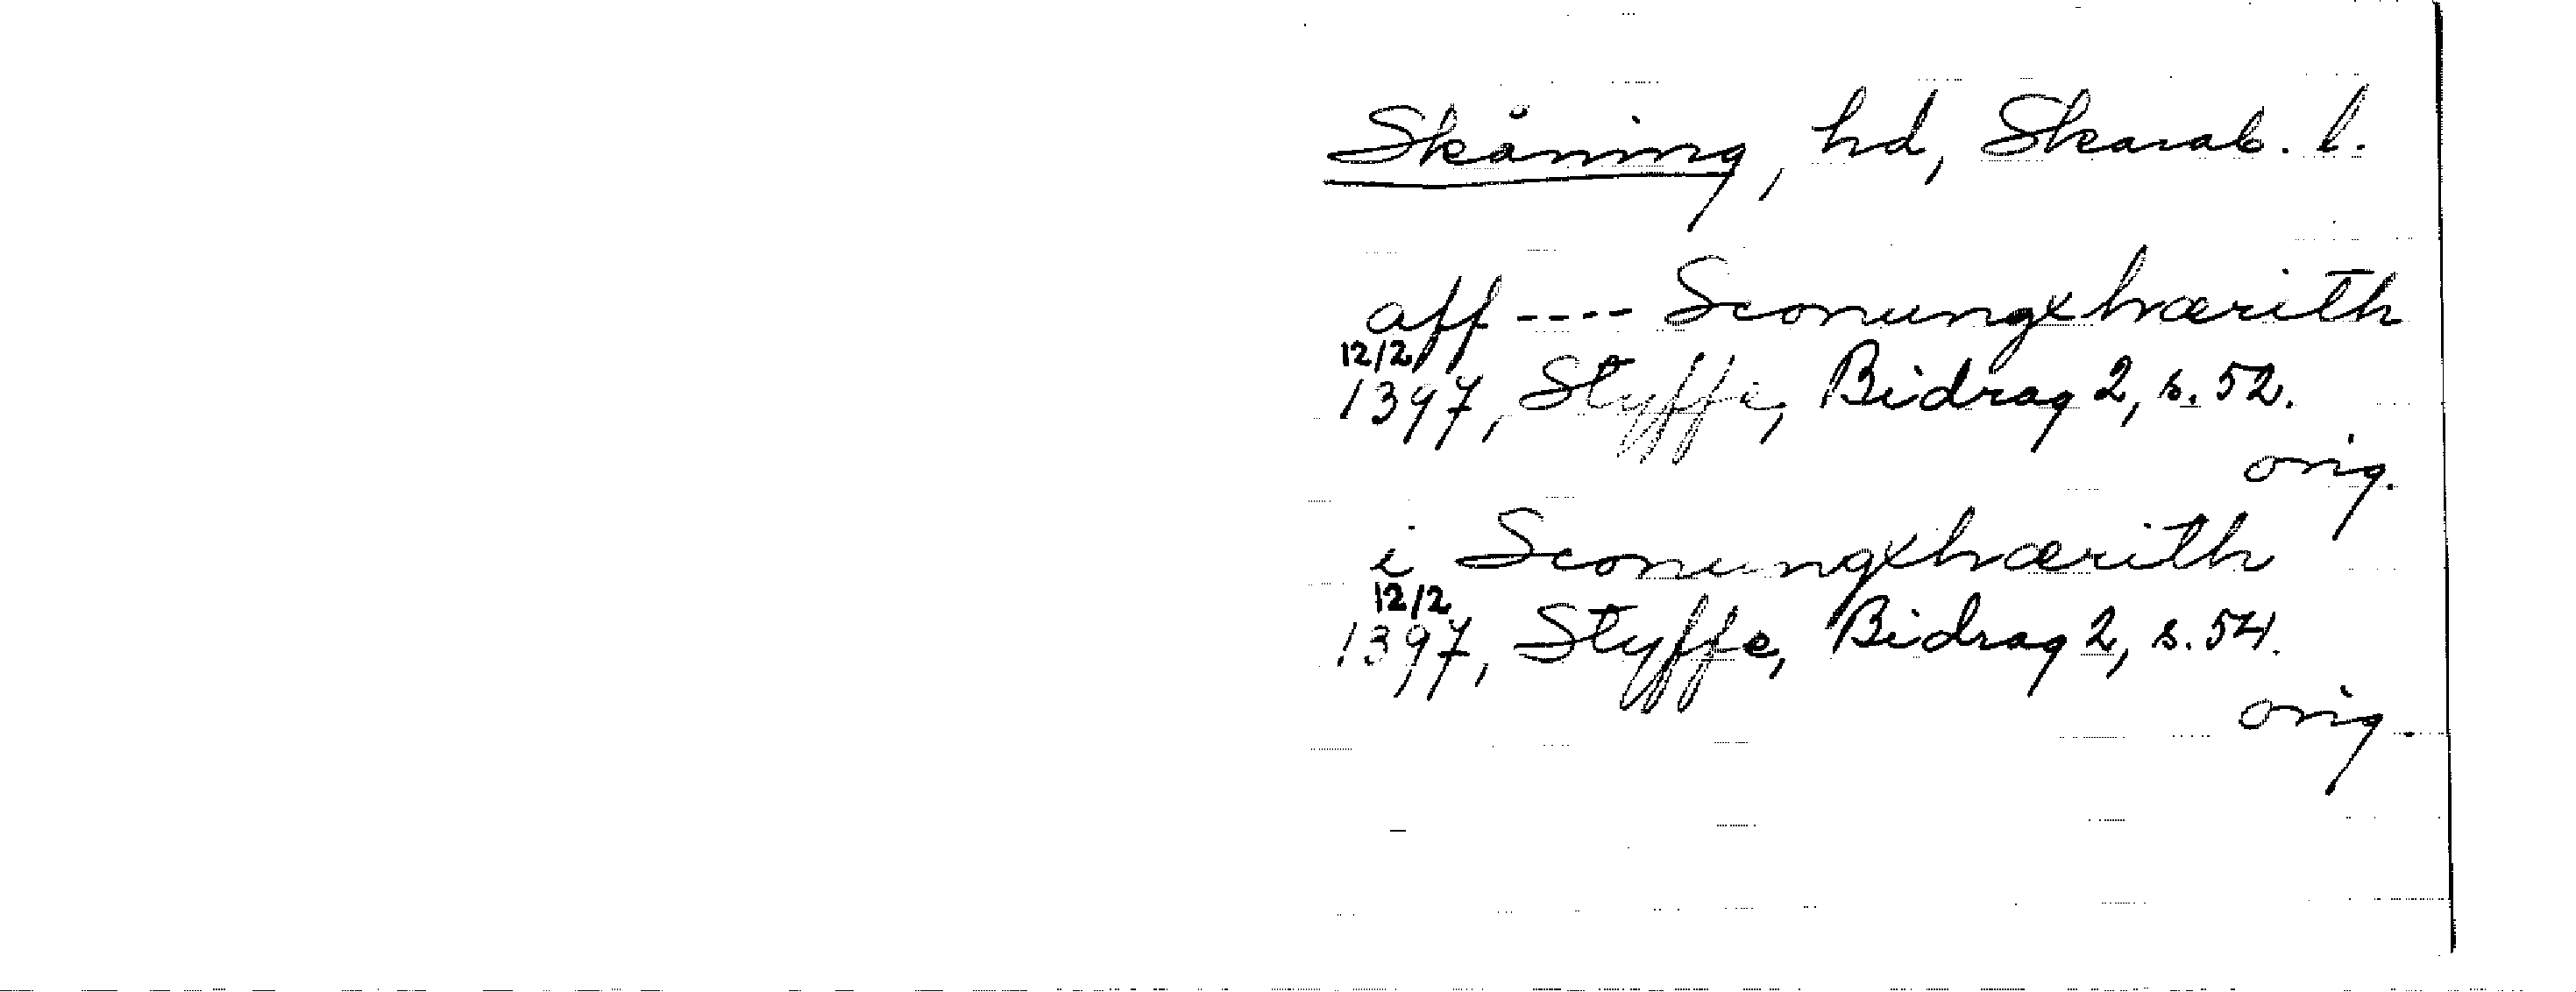 Skåning, hd, Skarab. l.
aff ---- Sconungxhærith
12/2
1397, Styffe, Bidrag 2, s. 52.
orig.
i Sconungxhærith
12/2
1397, Styffe, Bidrag 2, s. 54.
orig.